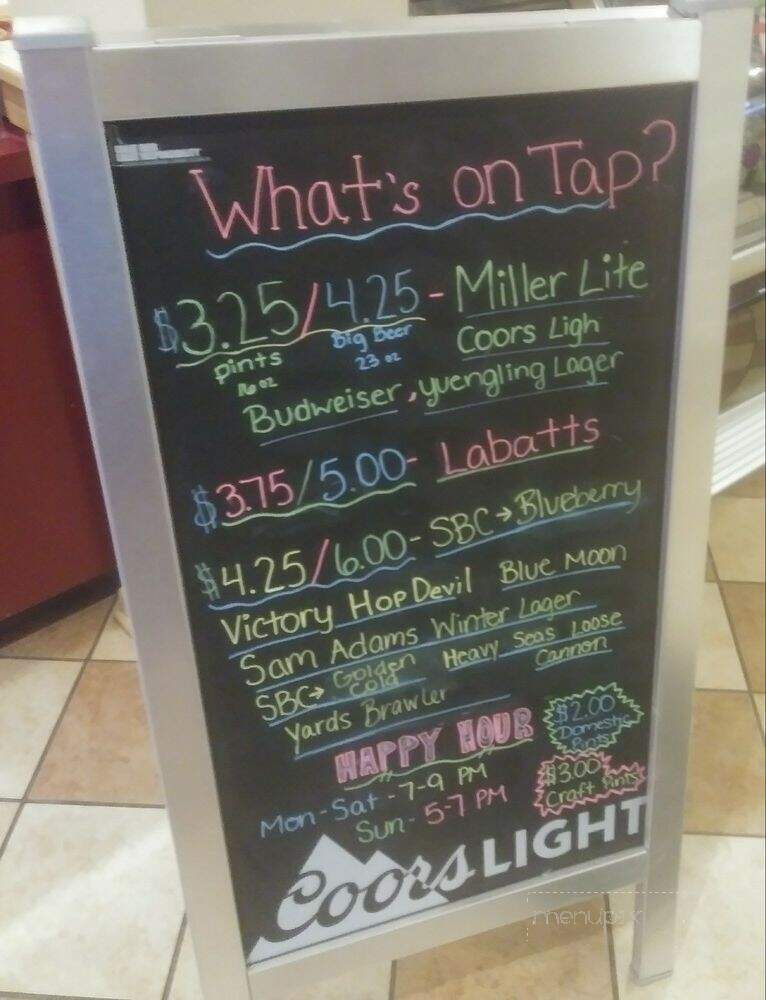 What's on Tap?
$3.25/4.25 - Miller Lite
pints Big Beer Coors Ligh
16 oz 23 oz
Budweiser, yuengling Lager
$3.75/5.00 - Labatts
$4.25/6.00 - SBC → Blueberry
Victory Hop Devil Blue Moon
Sam Adams Winter Lager
SBC → Golden Cold Heavy Seas Loose Cannon
Yards Brawler
HAPPY HOUR
$2.00 Domestic Pints
Mon-Sat - 7-9 PM
$3.00 Craft Pints
Sun - 5-7 PM
Coors LIGHT